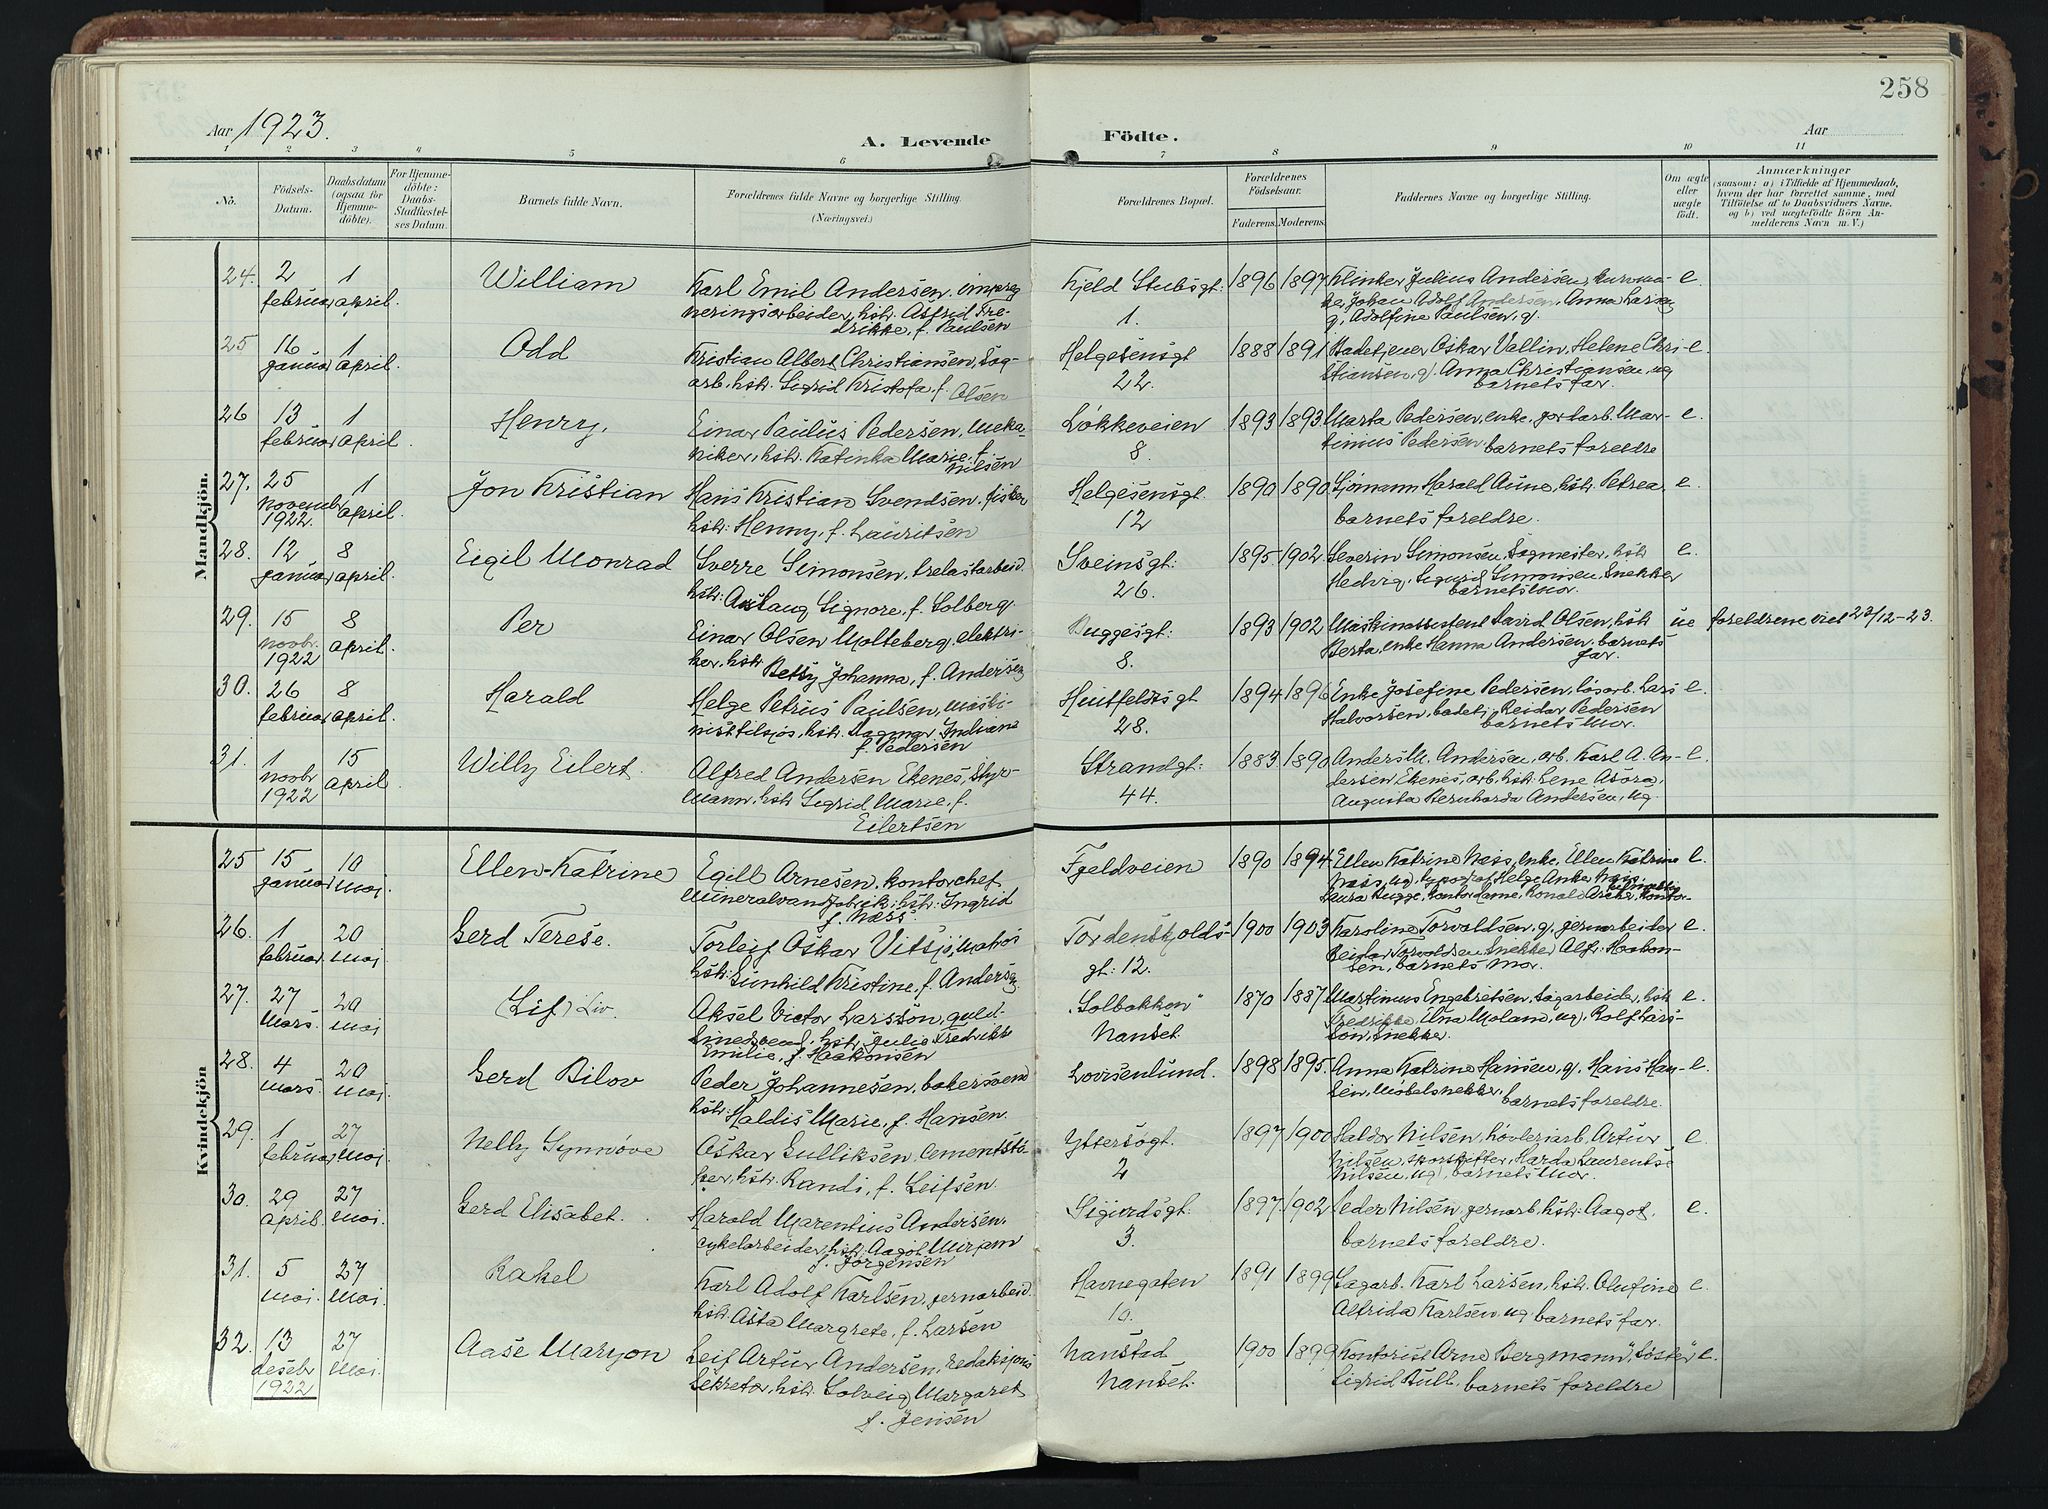 258
Aar 1923.
A. Levende Födte.
Aar
1 2 3 4 5 6 7 8 9 10 11
No.
Födsels-Datum.
Daabsdatum (ogsaa for Hjemmedöbte).
For Hjemmedöbte: Daabs-Stadfæstelses Datum.
Barnets fulde Navn.
Forældrenes fulde Navne og borgerlige Stilling.
(Næringsvei.)
Forældrenes Bopæl.
Forældrenes Födselsaar.
Faderens. Moderens.
Faddernes Navne og borgerlige Stilling.
Om ægte eller uægte födt.
Anmærkninger
(saasom: a) i Tilfælde af Hjemmedaab, hvem der har forrettet samme, med Tilföielse af to Daabsvidners Navne. og b) ved uægtefödte Börn Anmelderens Navn m. V.)
Mandkjön.
24. 2 februar 1 april. William
Karl Emil Andersen, impreg
neringsarbeider, hstr. Astrid Fre-
drikke, f. Paulsen
Kjeld Stubsgt: 1. 1896 1897
Klinker Julius Andersen,
Johan Adolf Andersen, Anna Larsen
g, Adolfine Paulsen, g. e.
25 16 januar 1 april. Odd
Kristian Albert Christiansen, Sag-
arb. hstr. Sigrid Kristofa, f. Olsen
Helgesensgt 22. 1888 1891
Badetjener Oskar Vallin, Helene Chri-
stiansen, g. Anna Christiansen, ug
barnets far. e.
26 13 februar 1 april. Henry.
Einar Paulus Pedersen, meka-
niker, hstr. Katinka Marie, f.
Nilsen
Løkkeveien 8. 1893 1893
Marta Pedersen, enke, jordarb. Mar-
tinius Pedersen, barnets foreldre e.
27. 25 novembr 1922 1 april. Jon Kristian
Hans Kristian Svendsen, fisker
hstr: Henny, f. Lauritsen
Helgesensgt. 12 1890 1890
Sjömann Harald Aune, hstr. Petrea,
barnets foreldre. e.
28. 12 januar 8 april. Eigil Monrad
Sverre Simonsen, trelastarbeid.
hstr: Aslaug Signore, f. Solberg.
Sveinsgt: 26. 1895 1902
Severin Simonsen, Sagmester, hstr
Hedvig, Sigurd Simonsen, Snekker
barnets mor. e.
29. 15 novbr. 1922 8 april. Per
Einar Olsen Molteberg, elektri-
ker, hstr Betsy Johanna, f. Andersen
Buggesgt: 8. 1893 1902
Maskinassistent David Olsen, hstr
Berta, enke Hanna Andersen, barnets
far. ue foreldrene viet 23/12-23.
30. 26 februar 8 april. Harald
Helge Petrus Paulsen, maski-
nist tilsjös, hstr. Dagmar Indiane
f. Pedersen
Huitfeldtsgt 28. 1894 1896
Enke Josefine Pedersen, lösarb. Lars
Halvorsen, badetj. Reidar Pedersen
barnets mor. e.
31. 1 novbr 1922 15 april. Willy Eilert.
Alfred Andersen Ekenes, Styr-
mann, hstr Sigrid Marie, f.
Eilertsen
Strandgt: 44. 1883 1890
Anders M. Andersen, arb. Karl A. An-
dersen, Ekenes, arb. hstr. Lene Asora,
Augusta Bernharda Andersen, ug. e.
Kvindekjön
25 15 januar 10 mai Ellen Katrine
Egill Arnesen, kontorchef
Mineralvandfabrik, hstr: Ingrid
f. Næss
Fjeldveien 1890 1894
Ellen Katrine Næss, enke, Ellen Katrine
Næss, ug, typograf Helge Anker Næss,
Laura Bugge, Kontordame, Ronald e.
26. 1 februar. 20 mai Gerd Terese.
Torleif Oskar Vitsjö, Matros
hstr: Gunhild Kristine, f. Andersen
Tordenskjolds-
gt: 12. 1900 1903
Karoline Torvaldsen, g. jernarbeider
Reidar Torvaldsen, Snekker Alfr: Haakon-
sen, barnets mor. e.
27. 27 Mars. 20 mai (Lif) Liv.
Aksel Victor Larsson, guld-
smedsvend, hstr Julie Fredrikke
Emilie, f. Haakonsen
"Solbakken" Nanset. 1870 1887
Martinus Engebretsen, Sagarbeider, hstr
Fredrikke, Una Moland, ug. Rolf Lars-
son, Snekker. e.
28. 4 mars. 20 mai. Gerd Bilov
Peder Johannesen, bakersvend
hstr: Haldis Marie, f. Hansen.
Lovisenlund. 1898 1895.
Anna Katrine Hansen, g. Hans Han-
sen, Møbelsnekker, barnets foreldre. e.
29. 1 februar 27 mai. Nelly Synnøve
Oskar Gulliksen, cementstö-
per, hstr. Randi, f. Leifsen.
Yttersögt. 2 1897 1900
Haldor Nilsen, høvleriarb, Artur
Nilsen, Harda Laurentse
Nilsen, ug, barnets mor. e
30. 29 april. 27 mai. Gerd Elisabet.
Harald Marentius Andersen,
cykelarbeider, hstr. Aagot Mirjam
f. Jörgensen
Sigurdsgt. 3. 1897 1902
Peder Nilsen, jernarb. hstr: Aagot,
barnets foreldre. e.
31. 5 mai. 27 mai. Rakel
Karl Adolf Karlsen, jernarbeid.
hstr: Asta Margrete, f. Larsen
Havnegaten 10. 1891 1899
Sagarb. Karl Larsen, hstr. Olufine
Alfrida Karlsen, ug. barnets far. e.
32. 13 desebr 1922 27 mai. Aase Maryon
Leif Artur Andersen, redaksjons
Sekretær, hstr. Solveig Margaret
f. Jensen
Nanstad Nanset. 1900 1899
Kontorist Arne Bergmann, "Söster"
Sigrid Bull, barnets foreldre e.